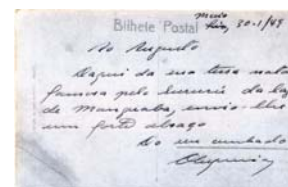 Bilhete Postal
30-1/49
Ao Augusto
Daqui da sua terra natal
famosa pelo Sururú da lagoa
de Manguaba, envio-lhe
um forte abraço
do seu cunhado